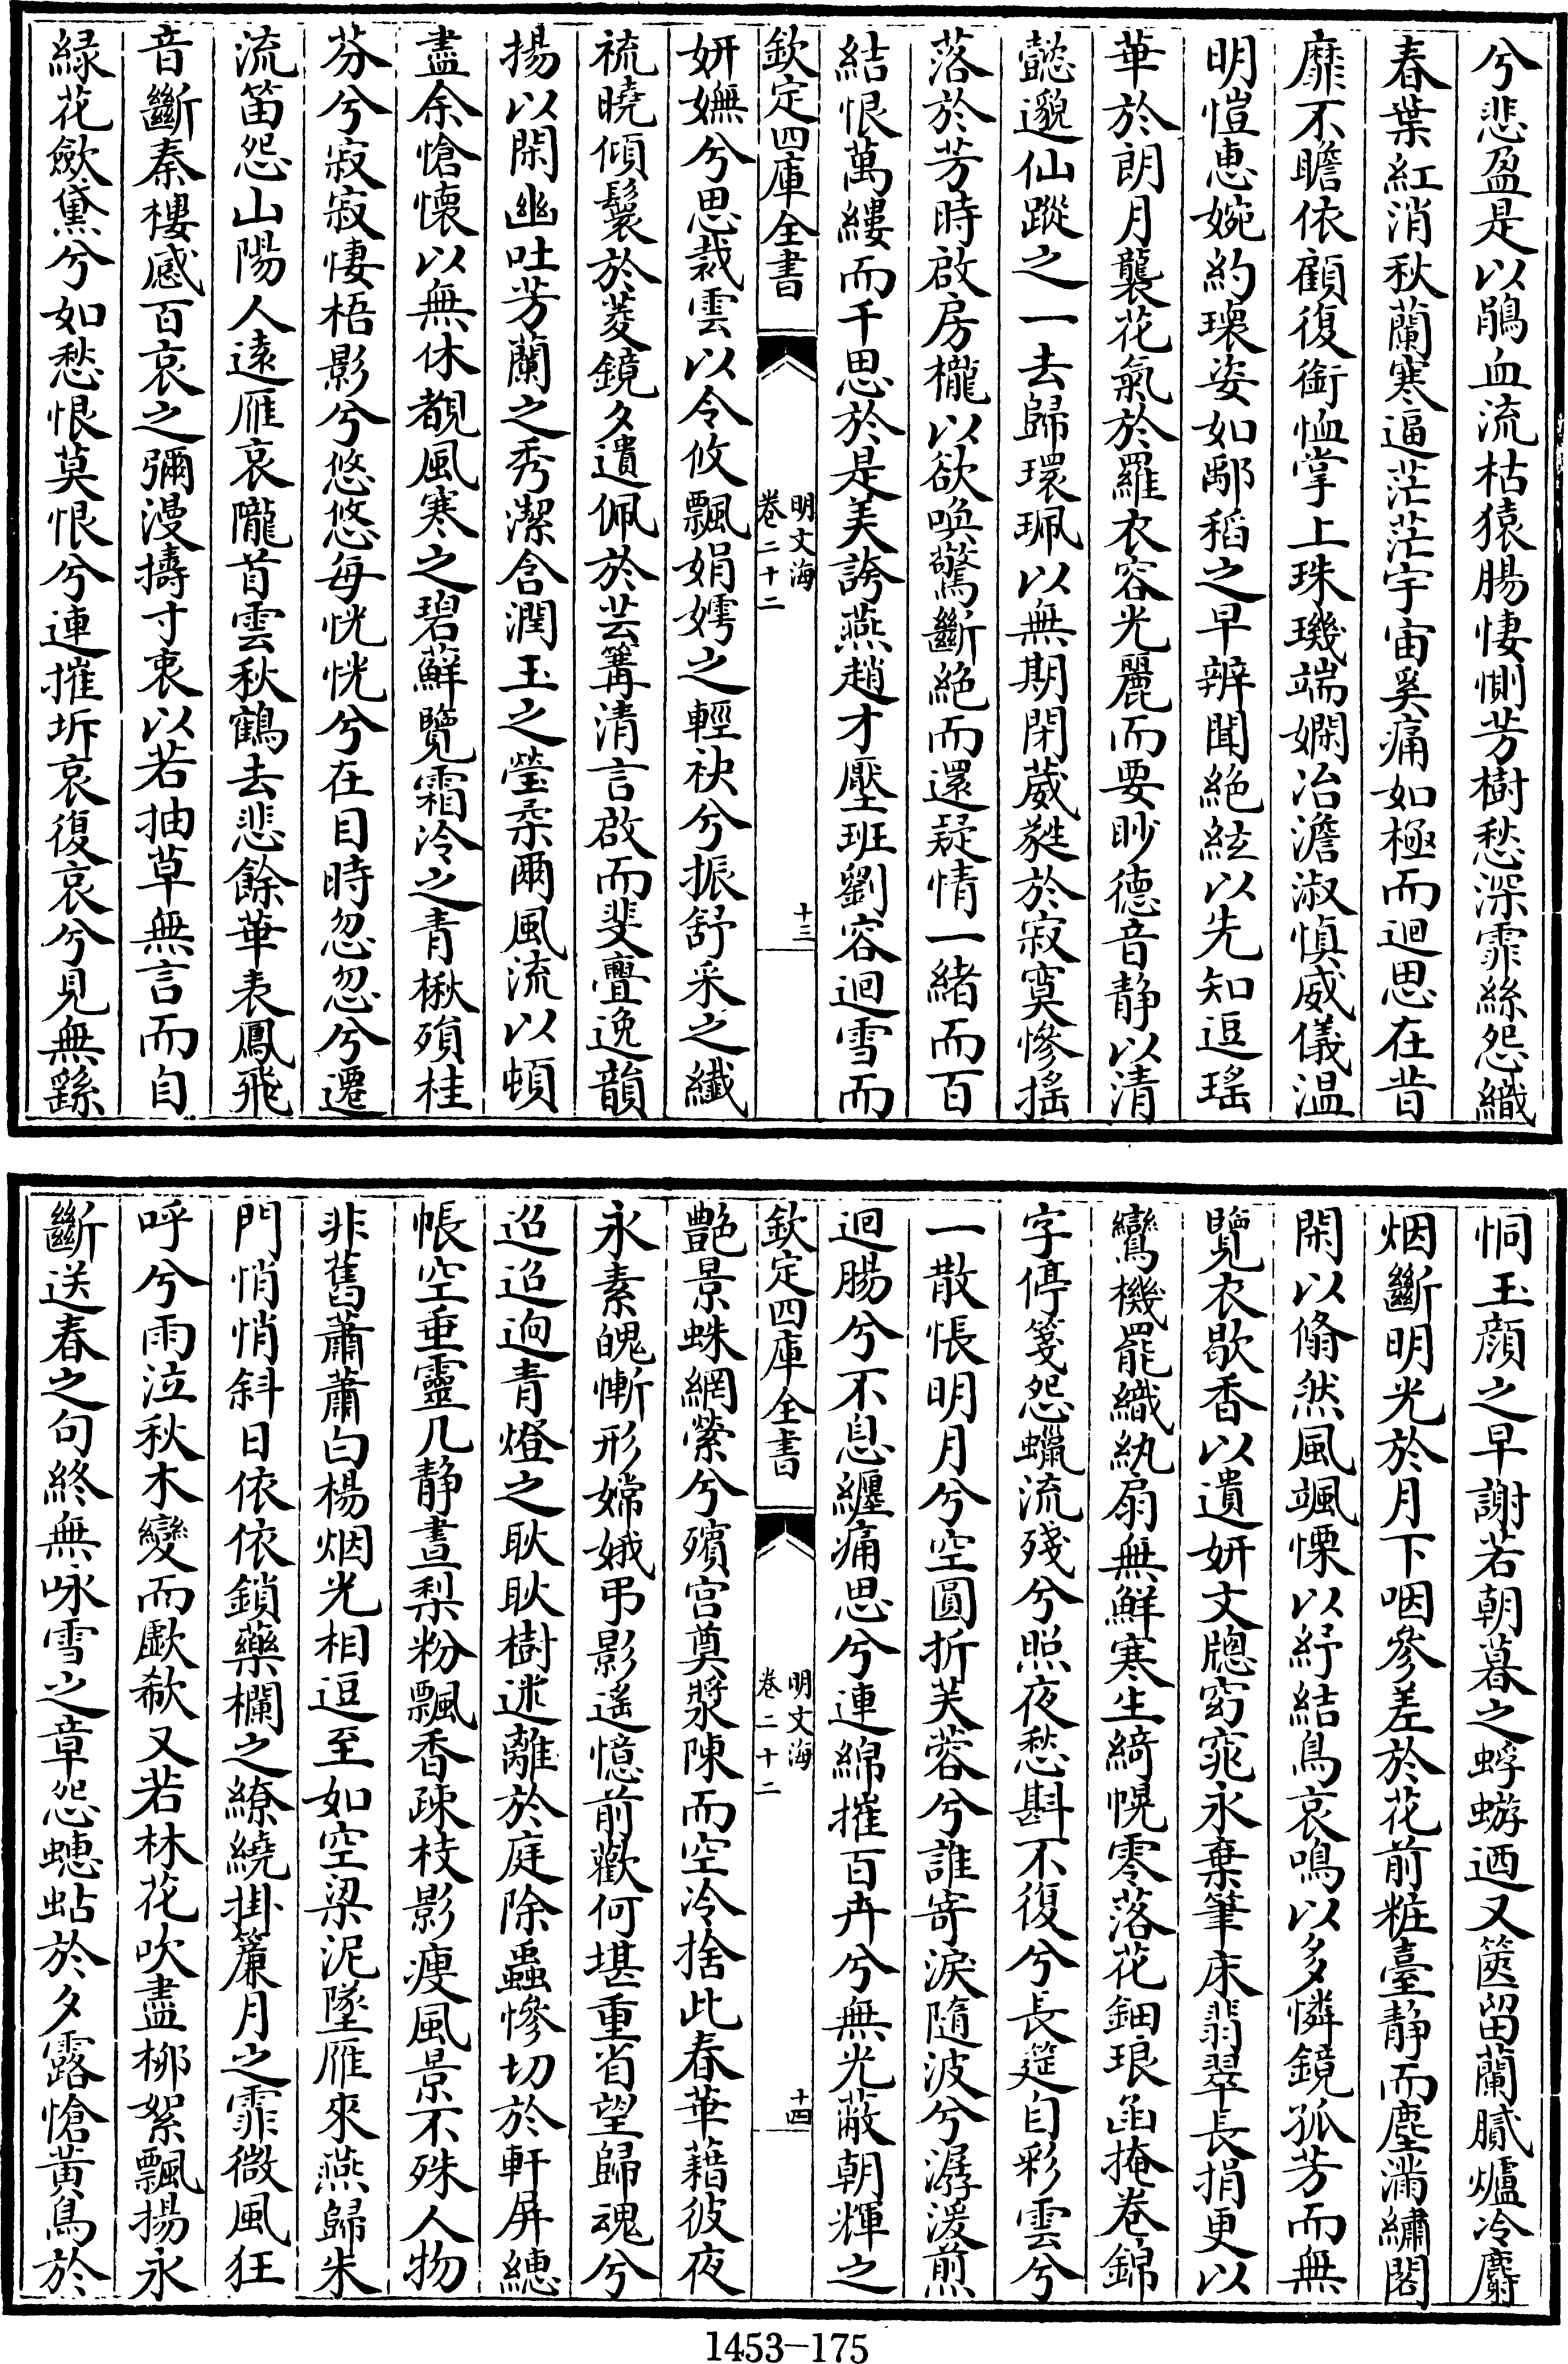 兮悲盈是以鵑血流枯猿腸悽惻芳樹愁深霏絲怨織
春葉紅消秋蘭寒逼茫茫宇宙奚痛如極而迴思在昔
靡不瞻依顧復銜恤掌上珠璣端嫻冶澹淑慎威儀温
明愷惠婉約瓌姿如鄢稻之早辨聞絶絃以先知逗瑤
華於朗月襲花氣於羅衣容光麗而要眇德音静以清
懿邈仙蹤之一去歸環珮以無期閉葳蕤於寂寞慘搖
落於芳時啟房櫳以欲喚驚斷絶而還疑情一緒而百
結恨萬縷而千思於是美誇燕趙才壓班劉容迴雪而
欽定四庫全書
明文海
卷二十二
十三
妍嫵兮思裁雲以令攸飄娟嫮之輕袂兮振舒采之纖
梳曉傾鬟於菱鏡夕遺佩於芸篝清言啟而斐亹逸韻
揚以閑幽吐芳蘭之秀潔含潤玉之瑩柔爾風流以頓
盡余愴懷以無休覩風寒之碧蘚覽霜冷之青楸殞桂
芬兮寂寂悽梧影兮悠悠每恍恍兮在目時忽忽兮遷
流笛怨山陽人遠雁哀隴首雲秋鶴去悲餘華表鳳飛
音斷秦樓慼百哀之彌漫擣寸衷以若抽草無言而自
緑花歛黛兮如愁恨莫恨兮連摧坼哀復哀兮見無繇
恫玉顔之早謝若朝暮之蜉蝣迺又篋留蘭膩爐冷麝
烟斷明光於月下咽參差於花前粧臺静而塵滿繡閣
閑以翛然風颯慄以紓結鳥哀鳴以多憐鏡孤芳而無
覽衣歇香以遺妍文牕窈窕永棄筆床翡翠長捐更以
鸞機罷織紈扇無鮮寒生綺幌零落花鈿琅函掩卷錦
字停箋怨蠟流殘兮照夜愁斟不復兮長筵自彩雲兮
一散悵明月兮空圓折芙蓉兮誰寄淚隨波兮潺湲煎
迴腸兮不息纏痛思兮連綿摧百卉兮無光蔽朝輝之
欽定四庫全書
明文海
卷二十二
十四
艶景蛛網縈兮殯宫奠漿陳而空冷捨此春華藉彼夜
永素魄慚形嫦娥弔影遥憶前歡何堪重省望歸魂兮
迢迢迥青燈之耿耿樹迷離於庭除蟲慘切於軒屏繐
帳空垂靈几静晝梨粉飄香疎枝影痩風景不殊人物
非舊蕭蕭白楊烟光相逗至如空梁泥墜雁來燕歸朱
門悄悄斜日依依鎖藥欄之繚繞掛簾月之霏微風狂
呼兮雨泣秋木變而歔欷又若林花吹盡栁絮飄揚永
斷送春之句終無咏雪之章怨蟪蛄於夕露愴黄鳥於
1453-175